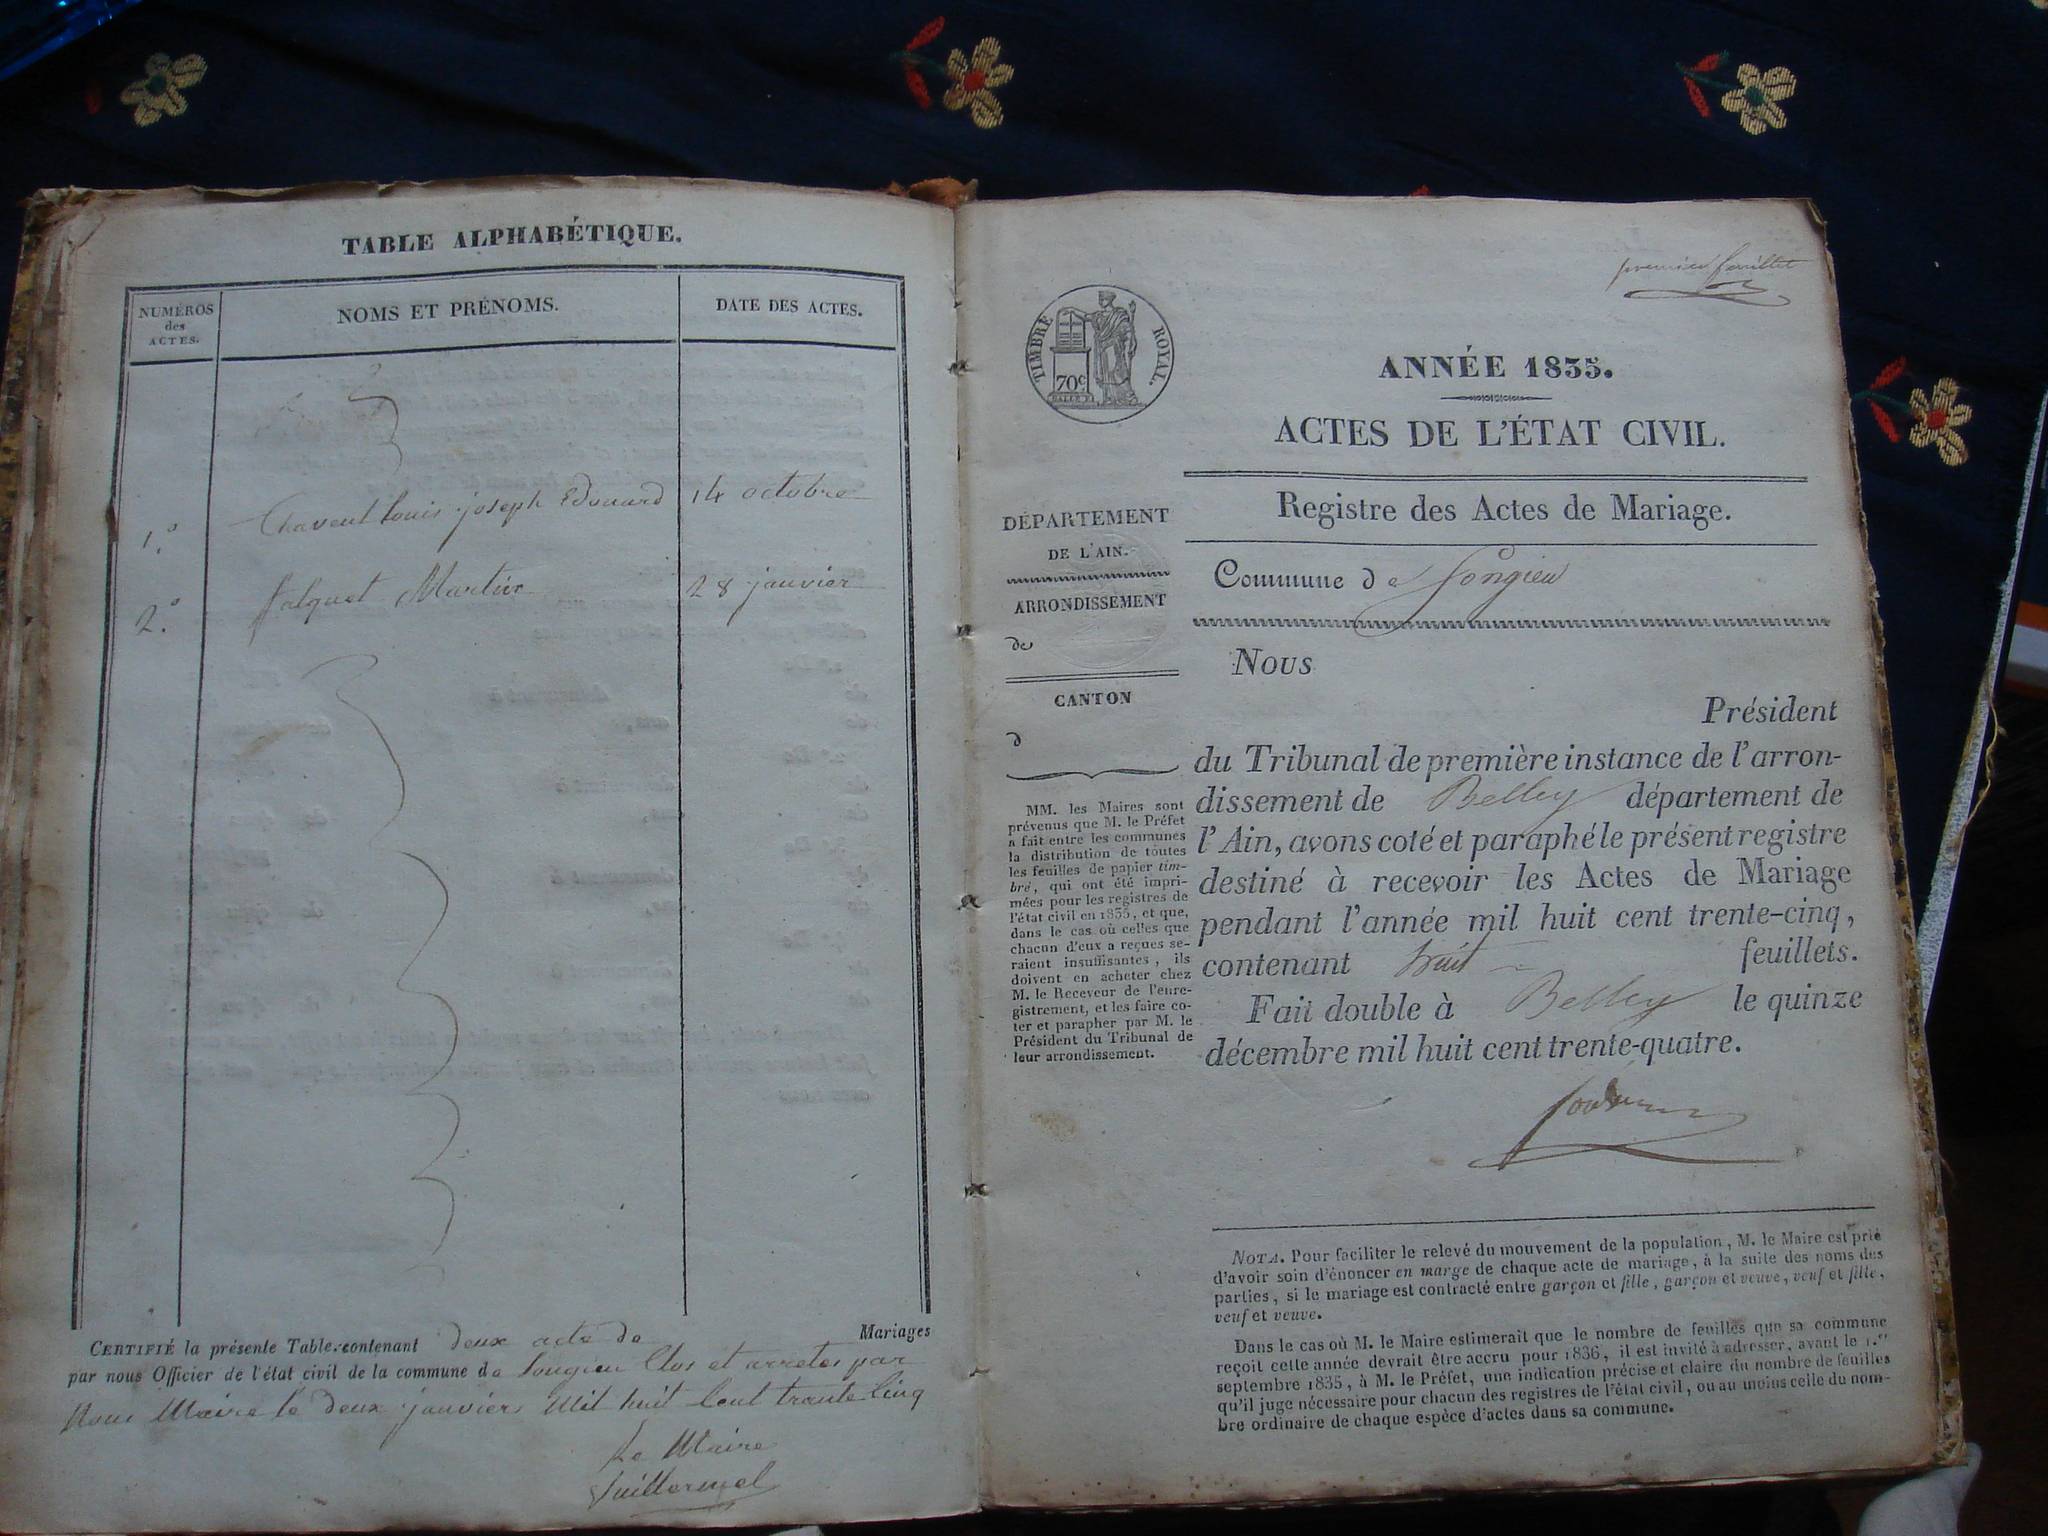 TABLE ALPHABÉTIQUE.
NUMÉROS des ACTES.
NOMS ET PRÉNOMS.
DATE DES ACTES.
1.° Chavent Louis joseph Edouard 14 octobre
2.° falquet Martin 28 janvier
CERTIFIÉ la présente Table contenant deux acte de Mariages
par nous Officier de l'état civil de la commune de Songieu Clos et arretes par
Nous Maire le deux janvier Mil huit Cent trante Cinq
Le Maire
Guillermel
premier feuillet
TIMBRE ROYAL.
70c
ANNÉE 1835.
ACTES DE L'ÉTAT CIVIL.
Registre des Actes de Mariage.
Commune de Songieu
DÉPARTEMENT
DE L'AIN.
ARRONDISSEMENT
de
CANTON
d
MM. les Maires sont
prévenus que M. le Préfet
a fait entre les communes
la distribution de toutes
les feuilles de papier tim-
bré, qui ont été impri-
mées pour les registres de
l'état civil en 1835, et que,
dans le cas où celles que
chacun d'eux a reçues se-
raient insuffisantes, ils
doivent en acheter chez
M. le Receveur de l'enre-
gistrement, et les faire co-
ter et parapher par M. le
Président du Tribunal de
leur arrondissement.
Nous
Président
du Tribunal de première instance de l'arron-
dissement de Belley département de
l'Ain, avons coté et paraphé le présent registre
destiné à recevoir les Actes de Mariage
pendant l'année mil huit cent trente-cinq,
contenant huit feuillets.
Fait double à Belley le quinze
décembre mil huit cent trente-quatre.
NOTA. Pour faciliter le relevé du mouvement de la population, M. le Maire est prié
d'avoir soin d'énoncer en marge de chaque acte de mariage, à la suite des noms des
parties, si le mariage est contracté entre garçon et fille, garçon et veuve, veuf et fille,
veuf et veuve.
Dans le cas où M. le Maire estimerait que le nombre de feuilles que sa commune
reçoit cette année devrait être accru pour 1836, il est invité à adresser, avant le 1.er
septembre 1835, à M. le Préfet, une indication précise et claire du nombre de feuilles
qu'il juge nécessaire pour chacun des registres de l'état civil, ou au moins celle du nom-
bre ordinaire de chaque espèce d'actes dans sa commune.